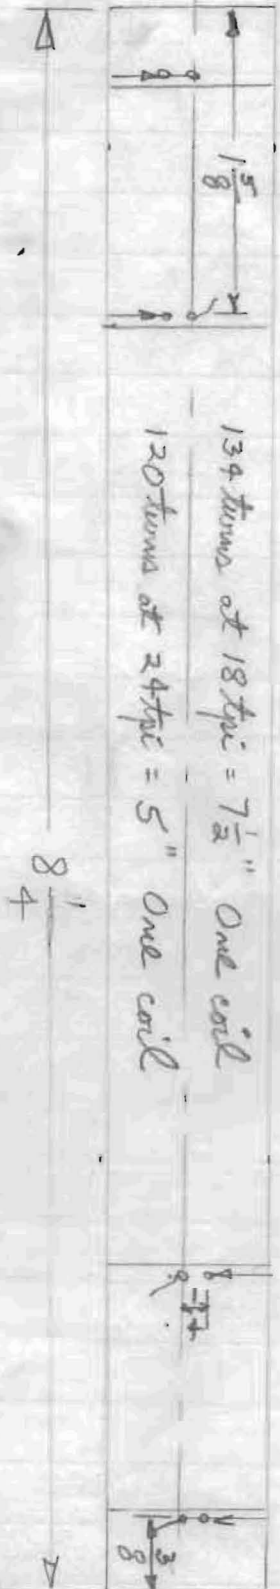 1 5/8
134 turns at 18 tpi = 7 1/2" One coil
120 turns at 24 tpi = 5" One coil
1/4
3/8
8 1/4